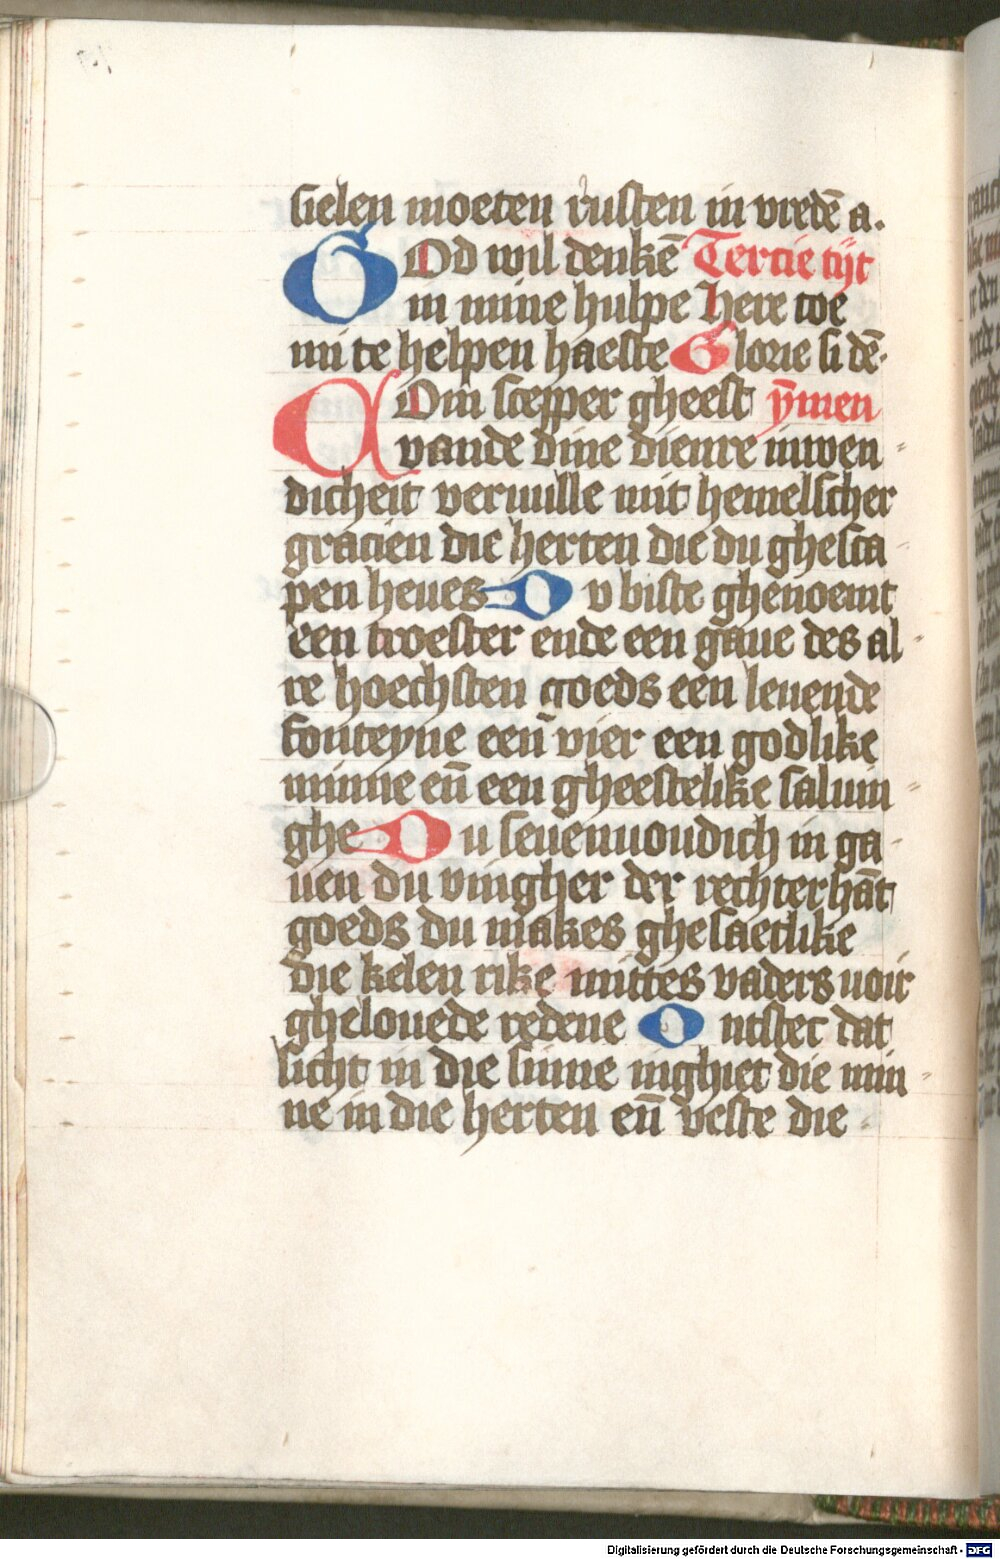 sielen moeten rusten in vredē a.
GOd wil denkē Tercie tijt
in mine hulpe here toe
mi te helpen haeste Glorie si dē.
COm scepper gheest ỹmen
vande dine dienre inwen
dicheit vervulle mit hemelscher
gracien die herten die du ghesca
pen heues Du biste ghenoemt
een troester ende een gaue des al
re hoechsten goeds een leuende
fonteyne een̄ vier een godlike
minne en̄ een gheestelike saluin
ghe Du seuenuoudich in ga
uen du vingher der rechterhāt
goeds du makes ghesaetlike
die kelen rike mittes vaders uoir
ghelouede redene Ontstect dat
licht in die sinne inghiet die min
ne in die herten en̄ veste die
Digitalisierung gefördert durch die Deutsche Forschungsgemeinschaft - DFG